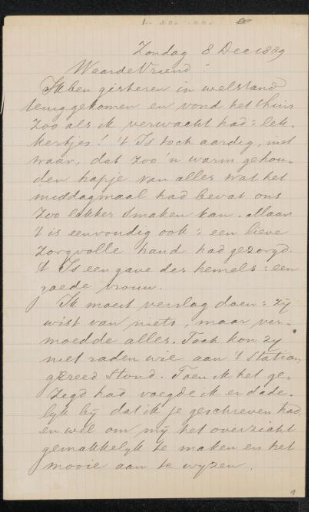 Zondag 8 Dec 1889
Waarde Vriend!
Ik ben gisteren in welstand
teruggekomen en vond het thuis
zoo als ik verwacht had: lek-
kertjes! 't Is toch aardig, niet
waar, dat zoo'n warm gehou-
den hapje van alles wat het
middagmaal had bevat ons
zoo lekker smaken kan. Maar
't is eenvoudig ook: een lieve
zorgvolle hand had gezorgd.
't Is een gave des hemels: een
goede vrouw.
Ik moest verslag doen: zij
wist van niets, maar ver-
moedde alles. Toch kon zij
niet raden wie aan 't Station
gereed stond. Toen ik het ge-
zegd had voegde ik er dade-
lijk bij dat ik je geschreven had
en wel om mij het overzicht
gemakkelijk te maken en het
mooie aan te wijzen.